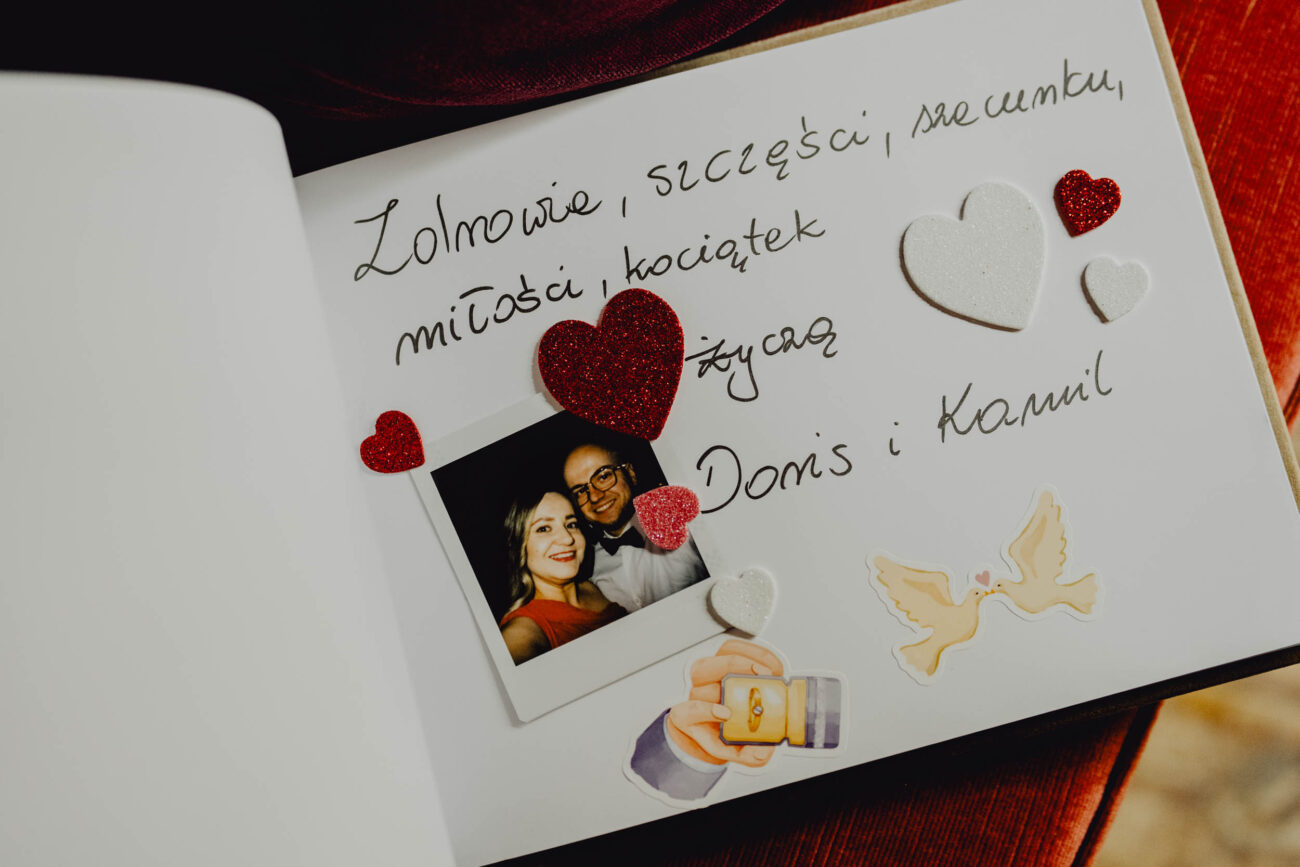 Zdrowia, szczęści, szacunku,
miłości, kociątek
życzą
Doris i Kamil